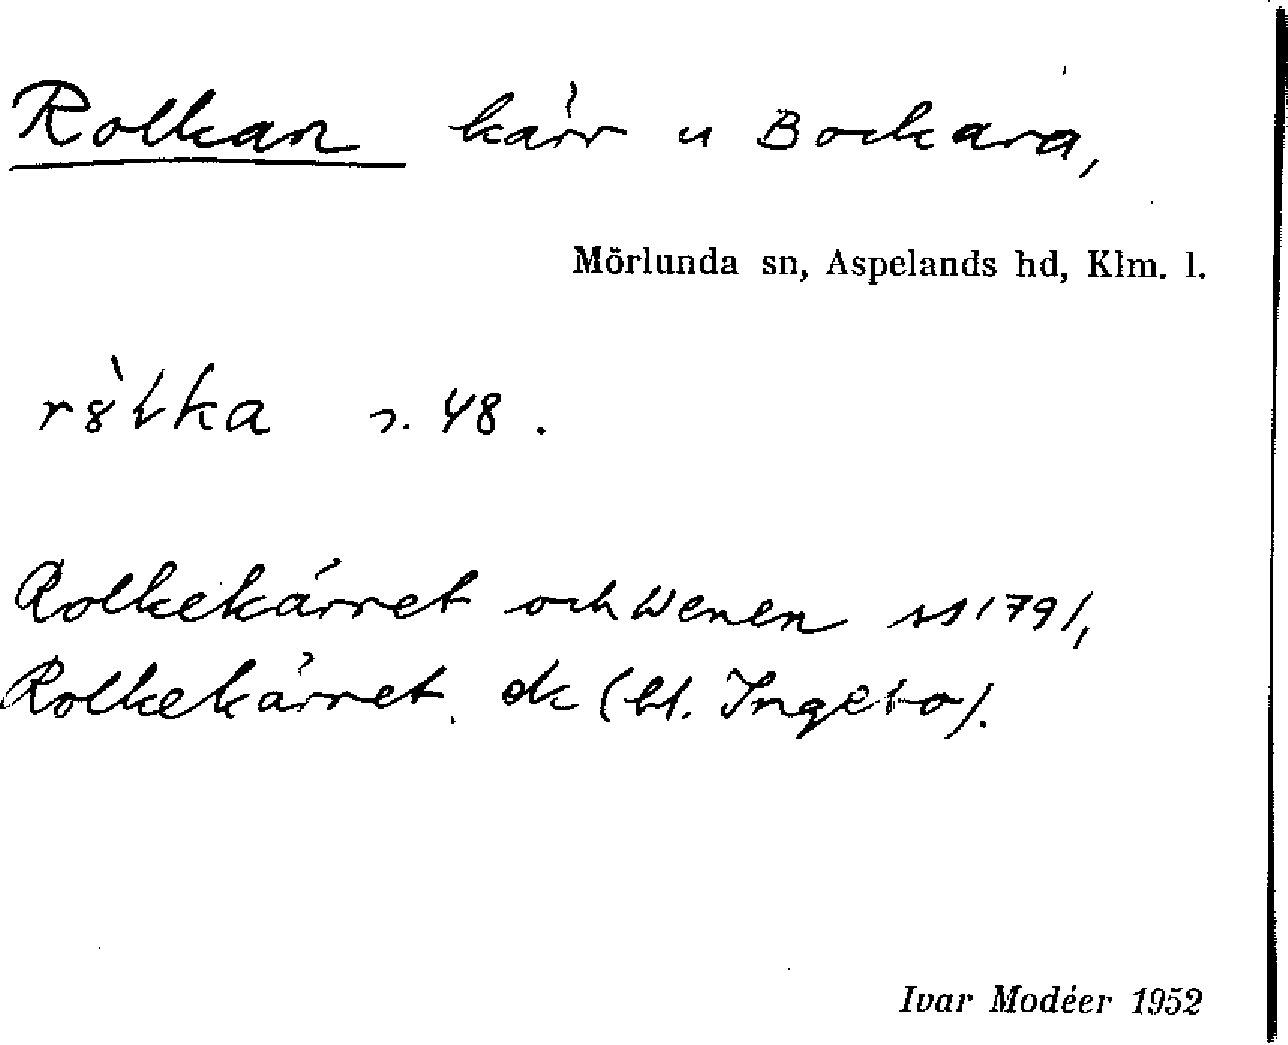 Rolkan kärr u Bockara,
Mörlunda sn, Aspelands hd, Klm. l.
s. 48.
Rolkekärret och Wenen ss 1791,
Rolkekärret. ek (bl. Ingebo).
Ivar Modéer 1952